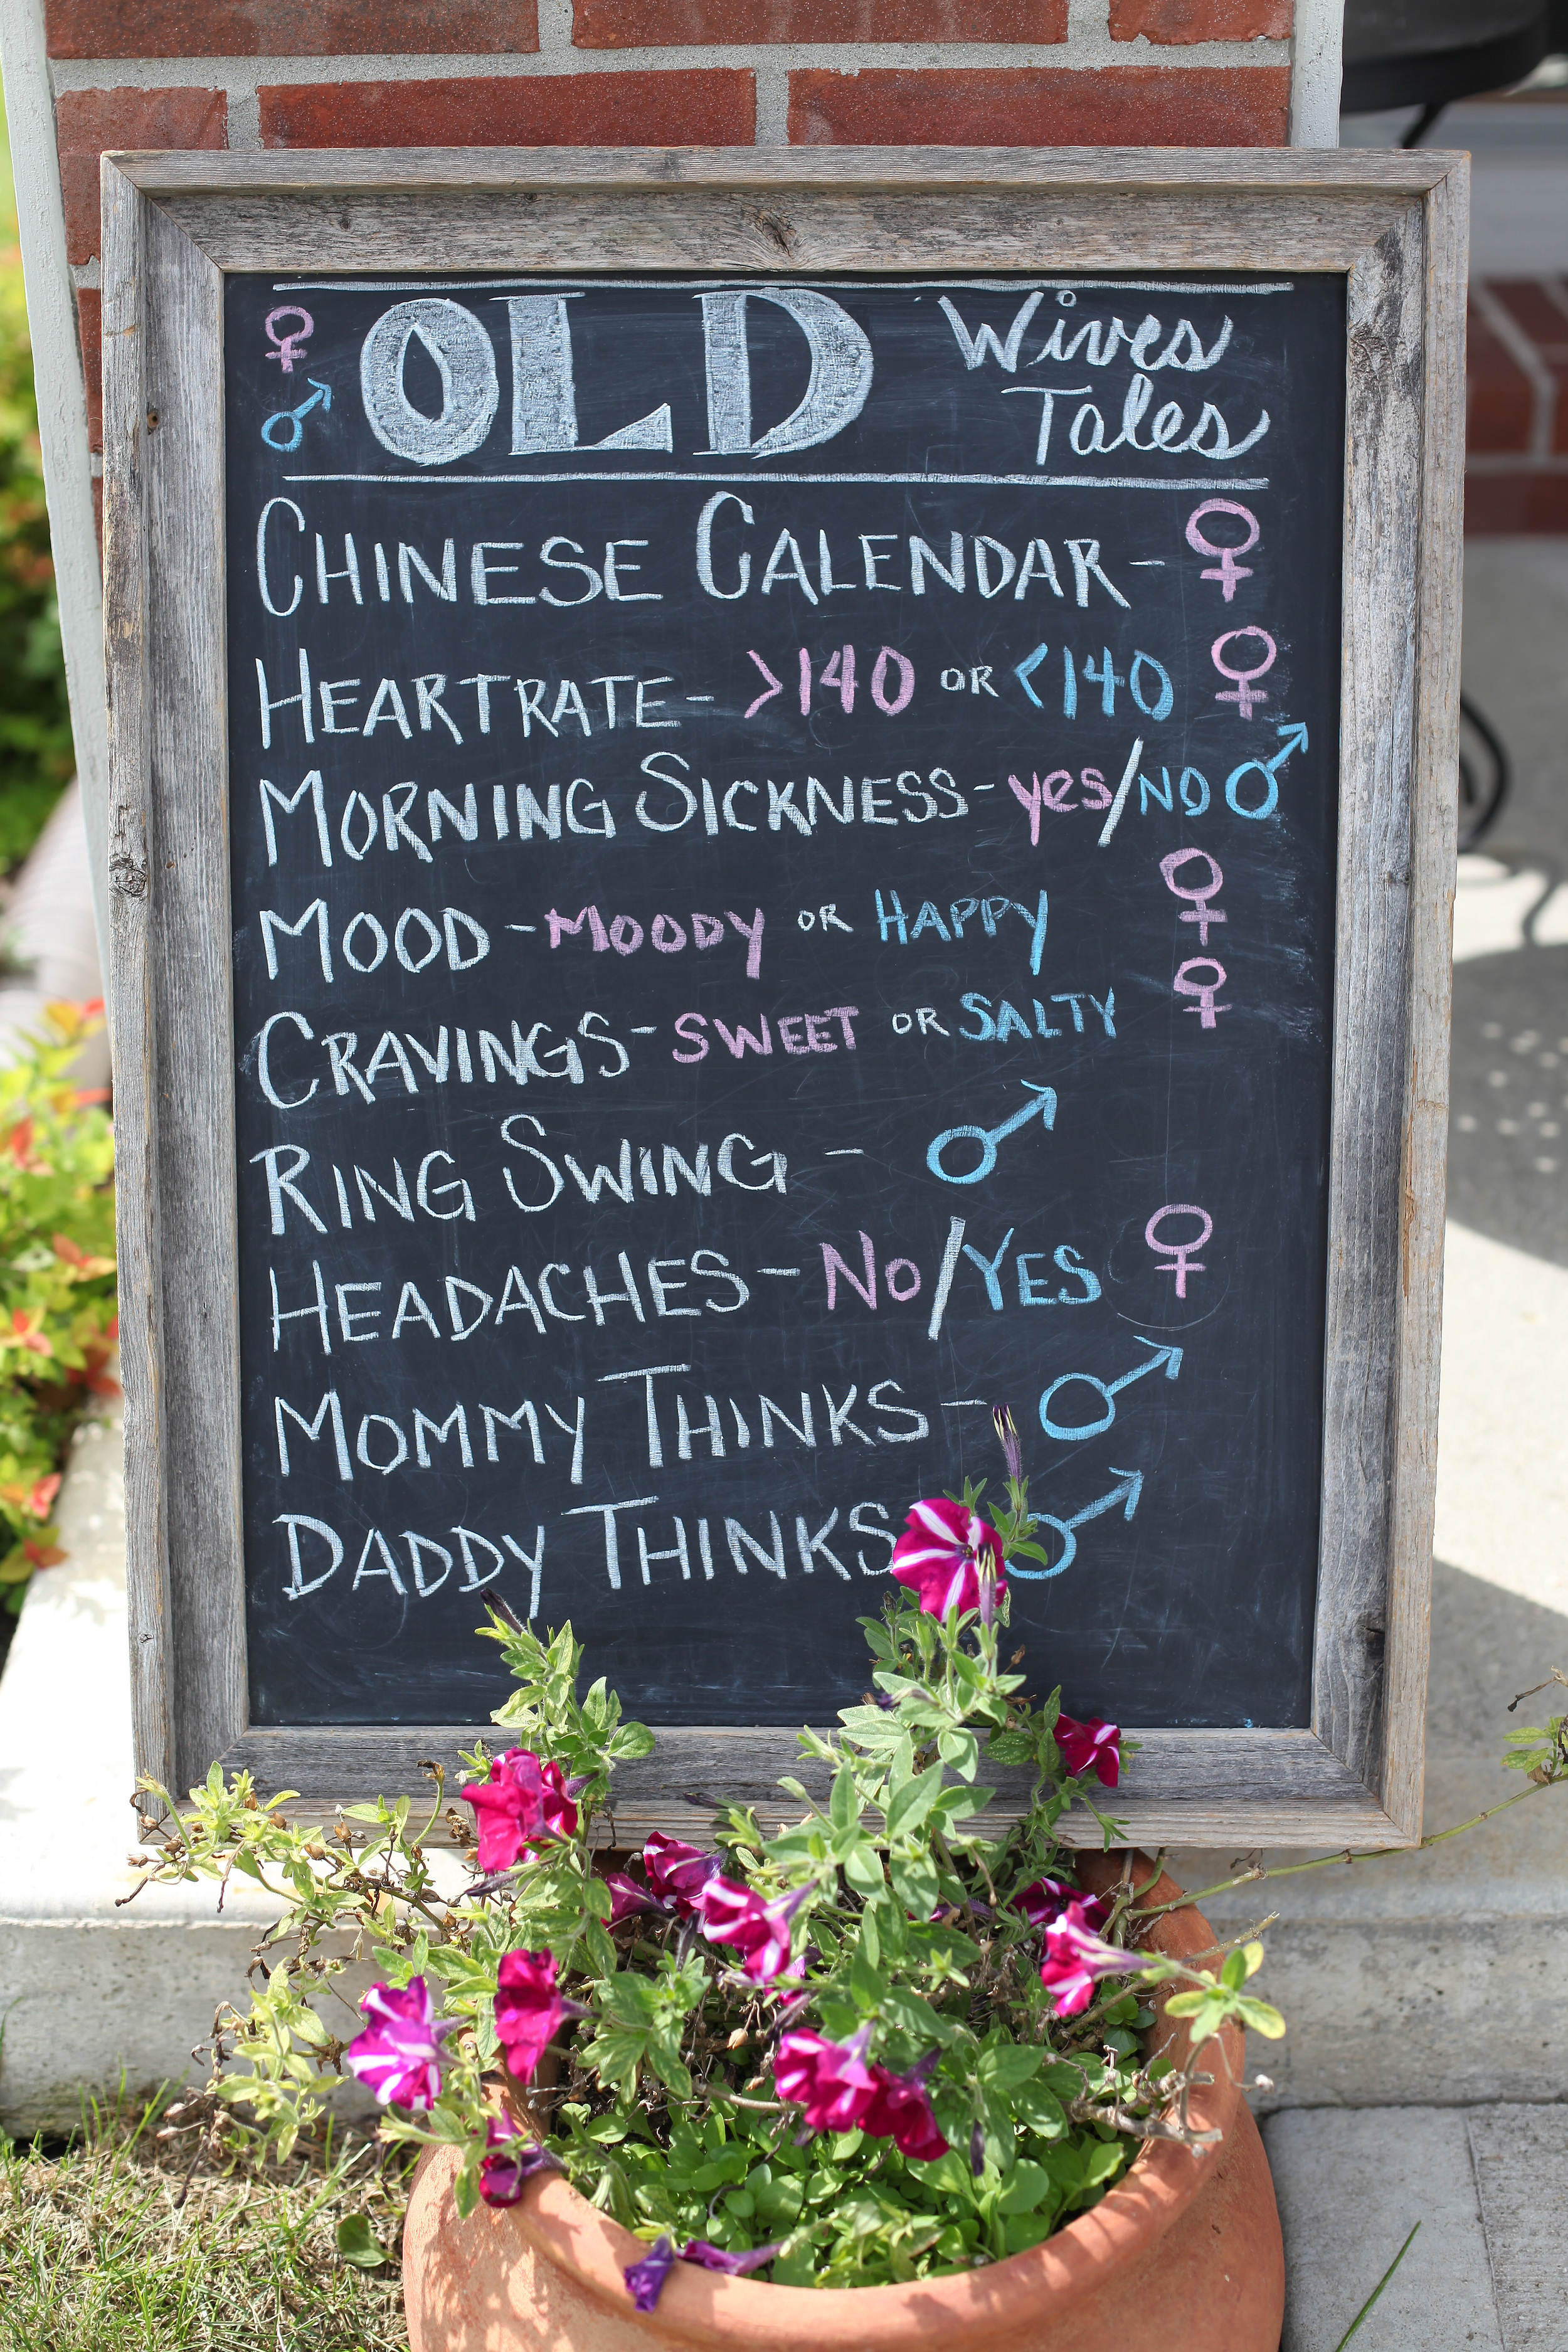 ♀ ♂ OLD Wives Tales
CHINESE CALENDAR- ♀
HEARTRATE- >140 OR <140 ♀
MORNING SICKNESS- yes/NO ♂
MOOD - MOODY OR HAPPY ♀
CRAVINGS - SWEET OR SALTY ♀
RING SWING - ♂
HEADACHES - No/YES ♀
MOMMY THINKS - ♂
DADDY THINKS ♂